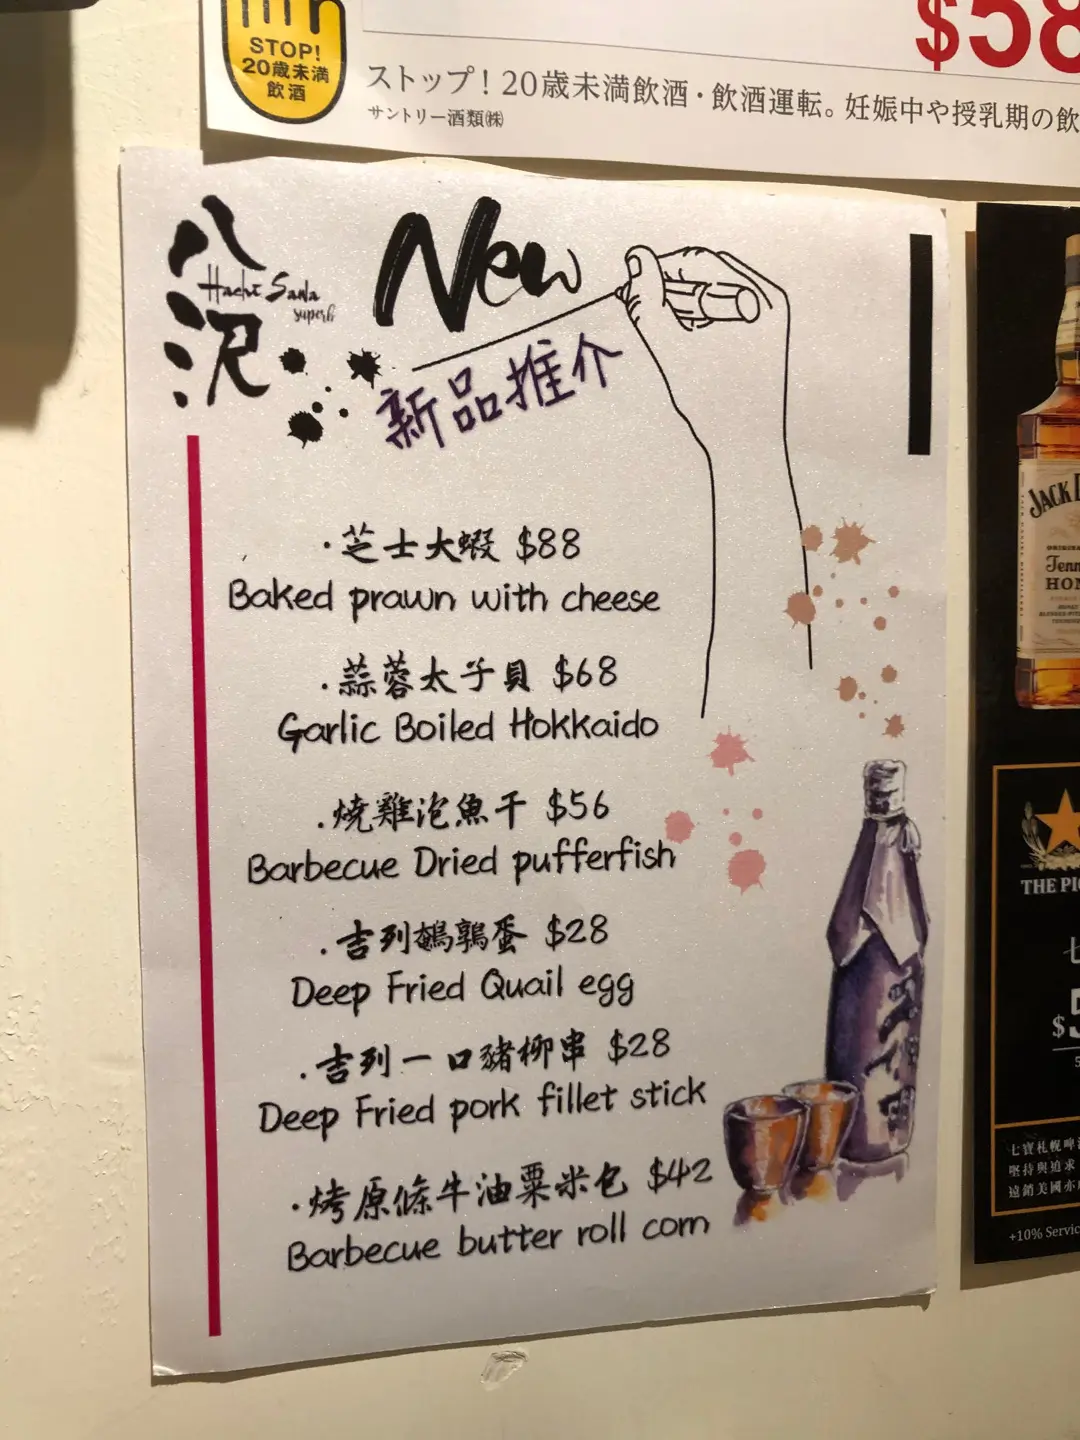 STOP!
20歳未満
飲酒
$58
ストップ！20歳未満飲酒・飲酒運転。妊娠中や授乳期の飲
サントリー酒類㈱
八
Hachi Sawa
superb
沢
New
新品推介
・芝士大蝦 $88
Baked prawn with cheese
・蒜蓉太子貝 $68
Garlic Boiled Hokkaido
・燒雞泡魚干 $56
Barbecue Dried pufferfish
・吉列鵪鶉蛋 $28
Deep Fried Quail egg
・吉列一口豬柳串 $28
Deep Fried pork fillet stick
・烤原條牛油粟米包 $42
Barbecue butter roll corn
JACK D
Tenn
HON
THE PI
七
$5
七寶札幌啤
堅持與追求
遠銷美國亦
+10% Servic